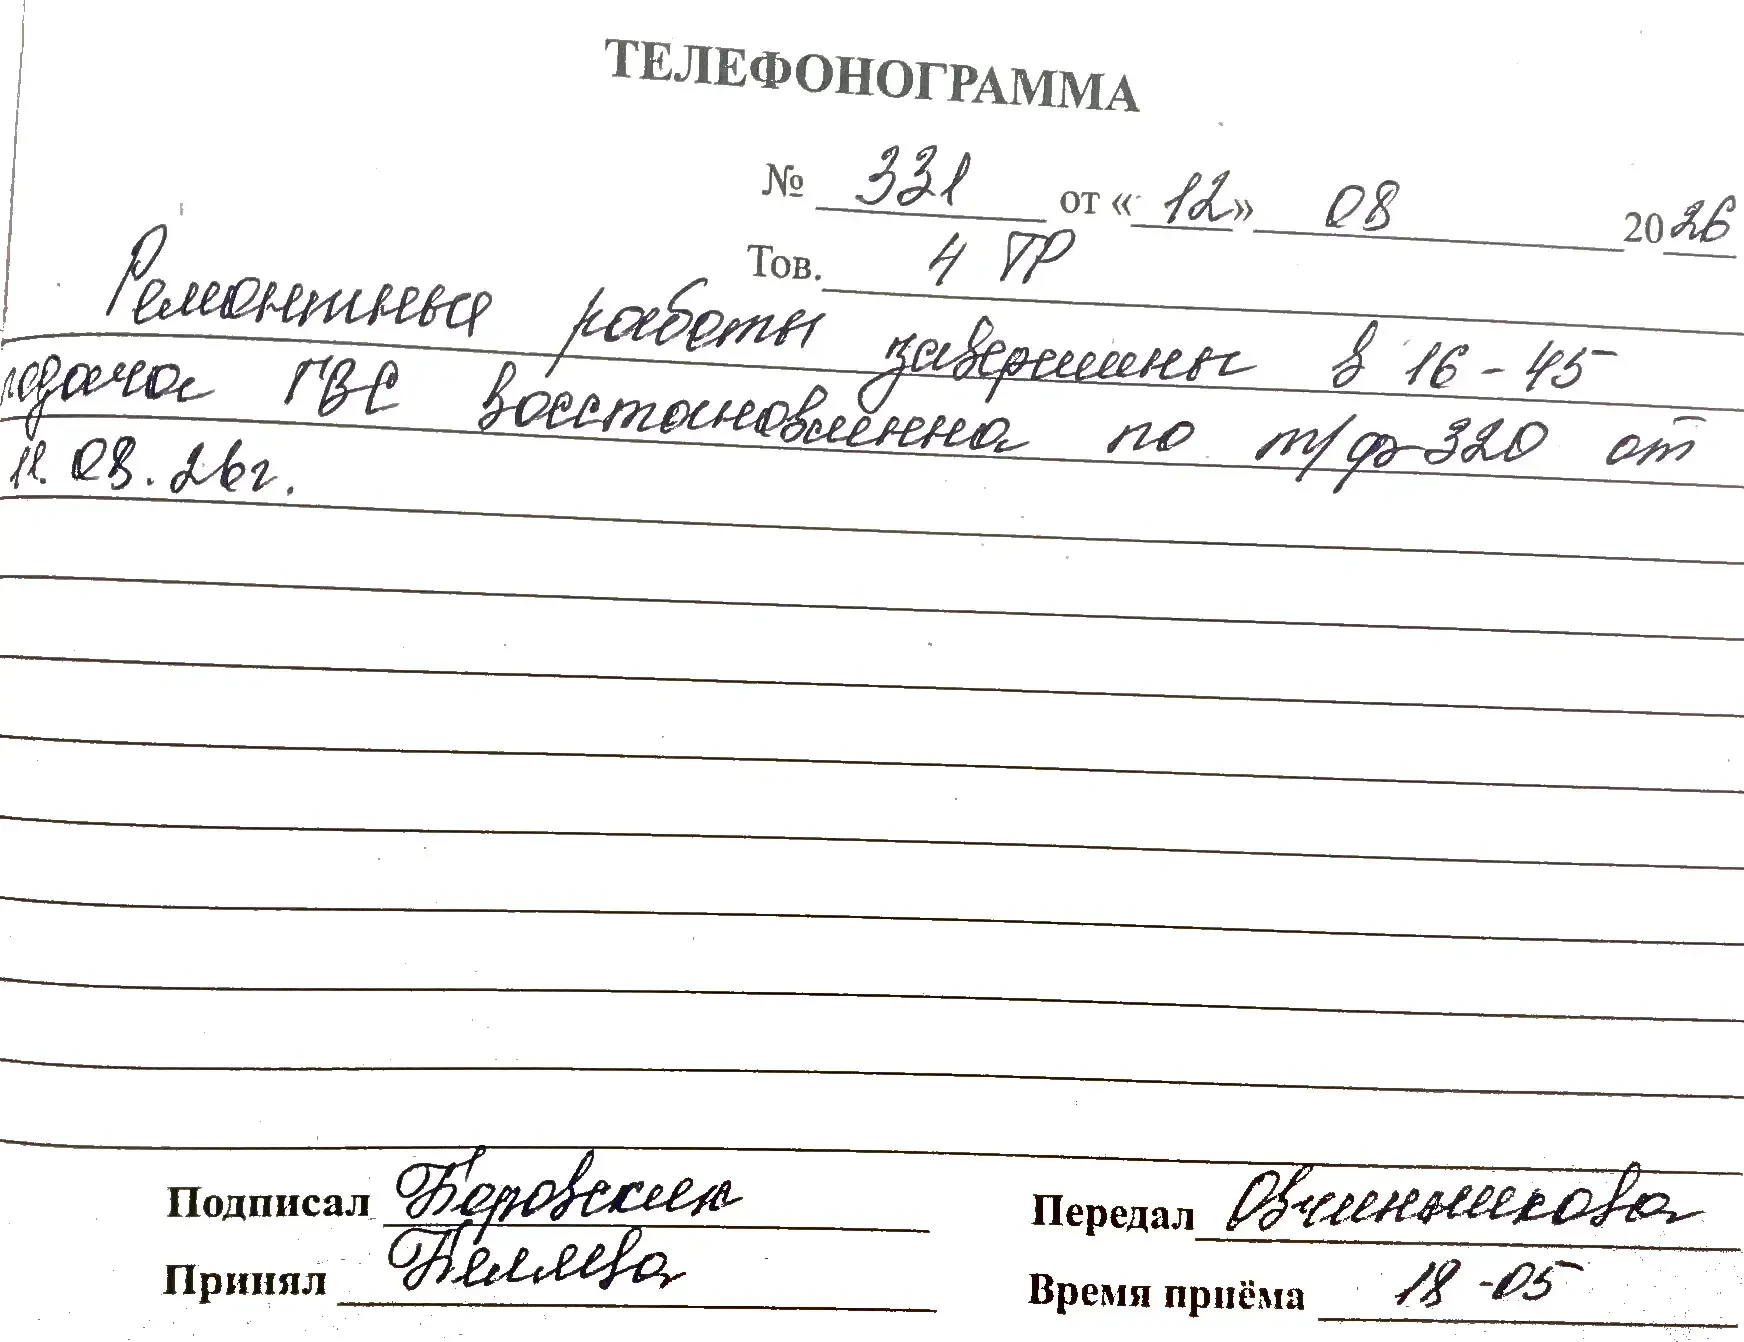 ТЕЛЕФОНОГРАММА
№ 331 от «12» 08 2026
Тов. 4 ТР
Ремонтные работы завершины в 16-45
подача ГВС восстановленна по т/ф-320 от
11.08.26г.
Подписал Боровский Передал Овчинникова
Принял Беляева Время приёма 18-05